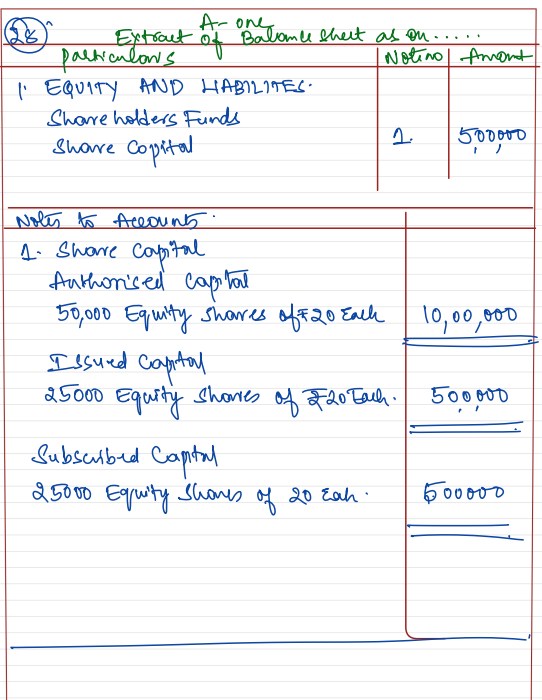 28
A- one
Extract of Balance Sheet as on.....
particulars Note no Amount
1. EQUITY AND LIABILITES.
Shareholders Funds
Share Capital 1. 5,00,000
Notes to Accounts.
1. Share Capital
Authorised Capital
50,000 Equity Shares of ₹20 Each 10,00,000
Issued Capital
25000 Equity Shares of ₹20 Each. 5,00,000
Subscribed Capital
25000 Equity Shares of 20 Each. 500000